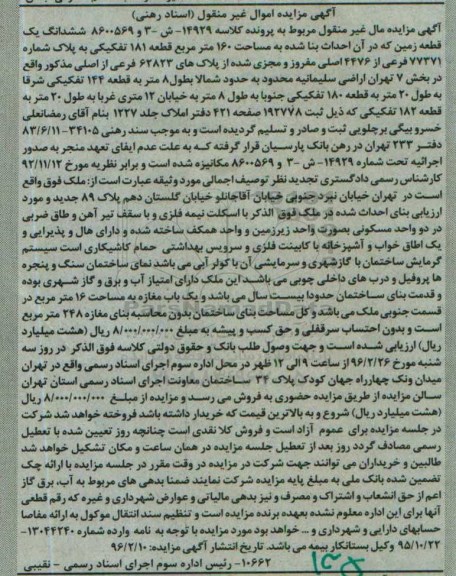 آگهی مزایده اموال غیر منقول (اسناد رهنی)
آگهی مزایده مال غیر منقول مربوط به پرونده کلاسه ۱۴۹۲۹- ش -۳ و ۸۶۰۰۵۶۹ ششدانگ یک
قطعه زمین که در آن احداث بنا شده به مساحت ۱۶۰ متر مربع قطعه ۱۸۱ تفکیکی به پلاک شماره
۷۷۳۷۱ فرعی از ۴۴۷۶ اصلی مفروز و مجزی شده از پلاک های ۶۲۸۲۳ فرعی از اصلی مذکور واقع
در بخش ۷ تهران اراضی سلیمانیه محدود به حدود شمالا بطول۸ متر به قطعه ۱۴۴ تفکیکی شرقا
به طول ۲۰ متر به قطعه ۱۸۰ تفکیکی جنوبا به طول ۸ متر به خیابان ۱۲ متری غربا به طول ۲۰ متر به
قطعه ۱۸۲ تفکیکی که ذیل ثبت ۱۹۲۷۷۸ صفحه ۴۲۱ دفتر املاک جلد ۱۲۲۷ بنام آقای رمضانعلی
خسرو بیگی برچلویی ثبت و صادر و تسلیم گردیده است و به موجب سند رهنی ۳۴۱۰۵-۸۳/۶/۱۱
دفتر ۲۳۳ تهران در رهن بانک پارسیان قرار گرفته که به علت عدم ایفای تعهد منجر به صدور
اجرائیه تحت شماره ۱۴۹۲۹- ش -۳ و ۸۶۰۰۵۶۹ مکانیزه شده است و برابر نظریه مورخ ۹۲/۱۱/۱۲
کارشناس رسمی دادگستری تجدید نظر توصیف اجمالی مورد وثیقه عبارت است از: ملک فوق واقع
است در تهران خیابان نبرد جنوبی خیابان آقاجانلو خیابان گلستان دهم پلاک ۸۹ جدید و مورد
ارزیابی بنای احداث شده در ملک فوق الذکر با اسکلت نیمه فلزی و با سقف تیر آهن و طاق ضربی
در دو واحد مسکونی بصورت واحد زیرزمین و واحد همکف ساخته شده و دارای هال و پذیرایی و
یک اطاق خواب و آشپزخانه با کابینت فلزی و سرویس بهداشتی حمام کاشیکاری است سیستم
گرمایش ساختمان با گازشهری و سرمایشی آن با کولر آبی می باشد نمای ساختمان سنگ و پنجره
ها پروفیل و درب های داخلی چوبی می باشد این ملک دارای امتیاز آب و برق و گاز شهری بوده
و قدمت بنای ساختمان حدودا بیست سال می باشد و یک باب مغازه به مساحت ۱۶ متر مربع در
قسمت جنوبی ملک می باشد و کل مساحت بنای ساختمان بدون محاسبه بنای مغازه ۲۴۸ متر مربع
است و بدون احتساب سرقفلی و حق کسب و پیشه به مبلغ ۸/۰۰۰/۰۰۰/۰۰۰ ریال (هشت میلیارد
ریال) ارزیابی شده است و جهت وصول طلب بانک و حقوق دولتی کلاسه فوق الذکر در روز سه
شنبه مورخ ۹۶/۲/۲۶ از ساعت ۹ الی ۱۲ ظهر در محل اداره سوم اجرای اسناد رسمی واقع در تهران
میدان ونک چهارراه جهان کودک پلاک ۳۴ ساختمان معاونت اجرای اسناد رسمی استان تهران
سالن مزایده از طریق مزایده حضوری به فروش می رسد و مزایده از مبلغ ۸/۰۰۰/۰۰۰/۰۰۰ ریال
(هشت میلیارد ریال) شروع و به بالاترین قیمت که خریدار داشته باشد فروخته خواهد شد شرکت
در جلسه مزایده برای عموم آزاد است و فروش کلا نقدی است چنانچه روز تعیین شده با تعطیل
رسمی مصادف گردد روز بعد از تعطیل جلسه مزایده در همان ساعت و مکان تشکیل خواهد شد
طالبین و خریداران می توانند جهت شرکت در مزایده در وقت مقرر در جلسه مزایده با ارائه چک
تضمین شده بانک ملی به مبلغ پایه مزایده شرکت نمایند ضمنا بدهی های مربوط به آب، برق گاز
اعم از حق انشعاب و اشتراک و مصرف و نیز بدهی مالیاتی و عوارض شهرداری و غیره که رقم قطعی
آنها برای این اداره معلوم نشده بعهده برنده مزایده است و تنظیم سند انتقال موکول به ارائه مفاصا
حسابهای دارایی و شهرداری و ... خواهد بود مورد مزایده با توجه به نامه وارده شماره ۱۳۰۴۴۲۴۰-
۹۵/۱۰/۲۲ وکیل بستانکار بیمه می باشد. تاریخ انتشار آگهی مزایده: ۹۶/۲/۱۰
۱۰۶۶۲- رئیس اداره سوم اجرای اسناد رسمی - نقیبی